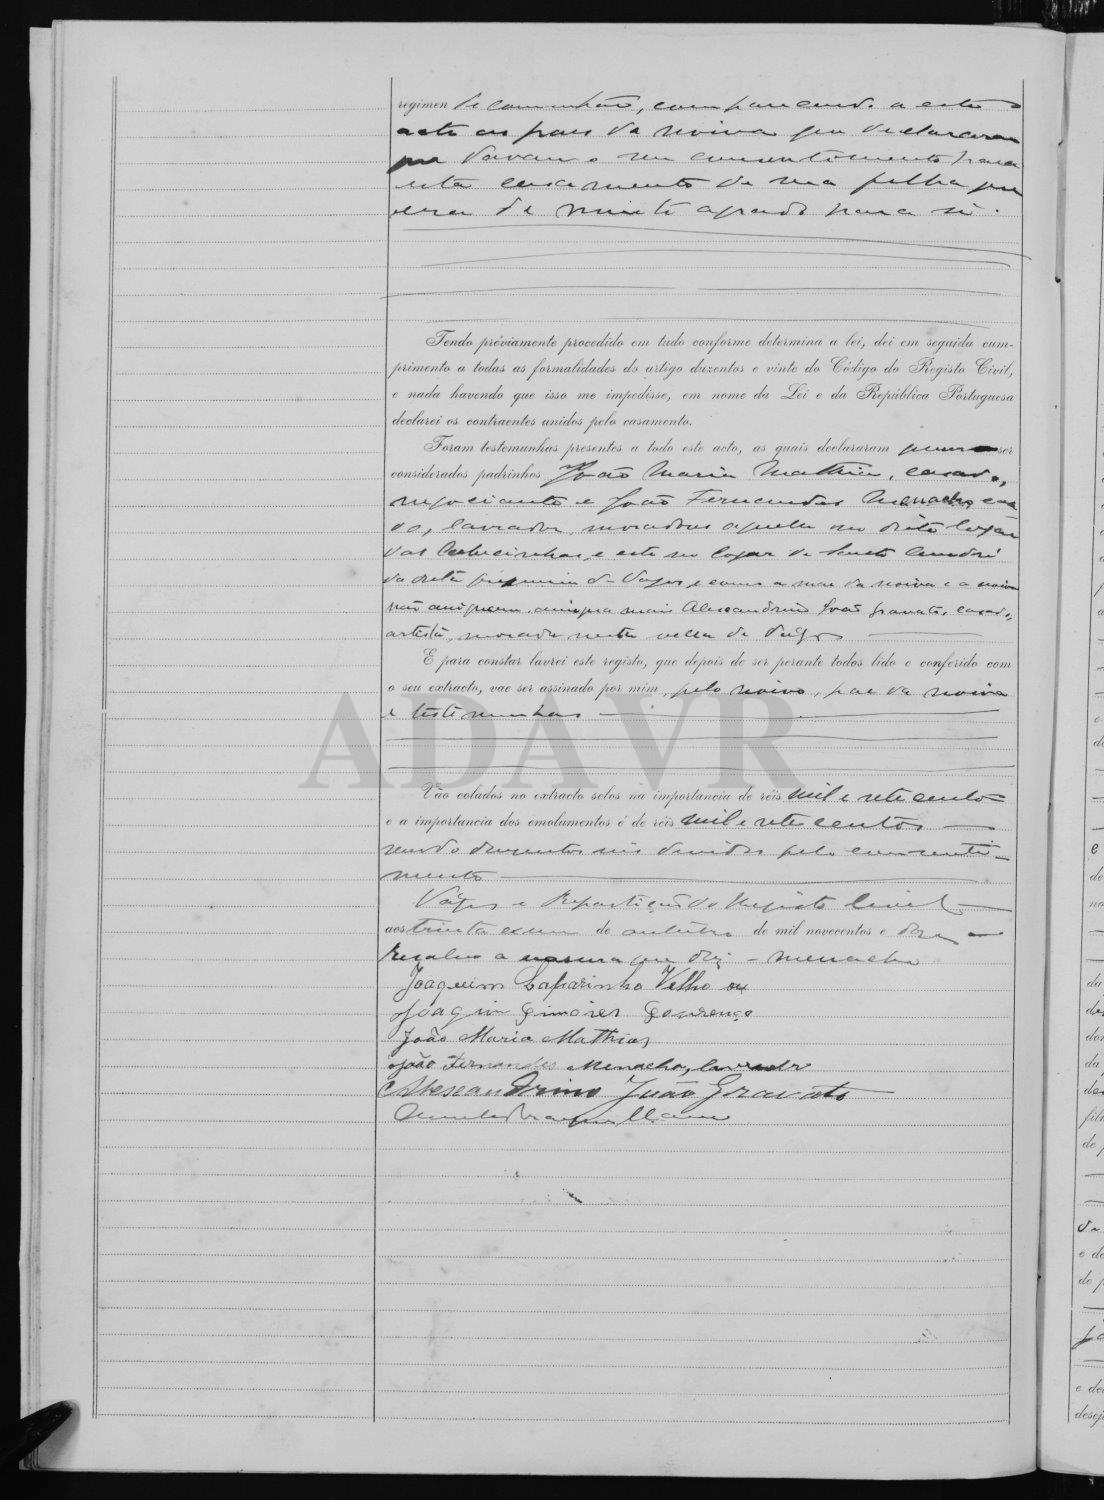 regimen de communhão, comparecendo a este
acto os paes da noiva que declararam
que davam o seu consentimento para
este casamento de sua filha que
era de muito agrado para si.
Tendo préviamente procedido em tudo conforme determina a lei, dei em seguida cum-
primento a todas as formalidades do artigo duzentos e vinte do Código do Registo Civil,
e nada havendo que isso me impedisse, em nome da Lei e da República Portuguesa
declarei os contraentes unidos pelo casamento.
Foram testemunhas presentes a todo este acto, as quais declararam querer ser
considerados padrinhos João Maria Mathias, casado,
negociante e João Fernandes Menacho, casa
do, lavrador, moradores aquelle no dito logar
das Cabecinhas, e este no logar de Santo André
da dita freguesia de Vagos, e como a mãe da noiva e a noiva
não assignem, assigna mais Alexandrino João Gravato, casado,
artista, morador nesta villa de Vagos
E para constar lavrei este registo, que depois de ser perante todos lido e conferido com
o seu extracto, vae ser assinado por mim, pelo noivo, pae da noiva
e testemunhas
ADAVR
Vão colados no extracto selos na importancia de réis mil e sete centos
e a importancia dos emolumentos é de réis mil e sete centos
sendo duzentos réis devidos pelo consenti-
mento
Vagos e Repartição do Registo Civil
aos trinta e um de outubro de mil novecentos e doze
Resalvo a rasura que diz - Menacho
Joaquim Caparinho Velho ou
Joaquim Lourenço
João Maria Mathias
João Fernandes Menacho, lavrador
Alexandrino João Gravato